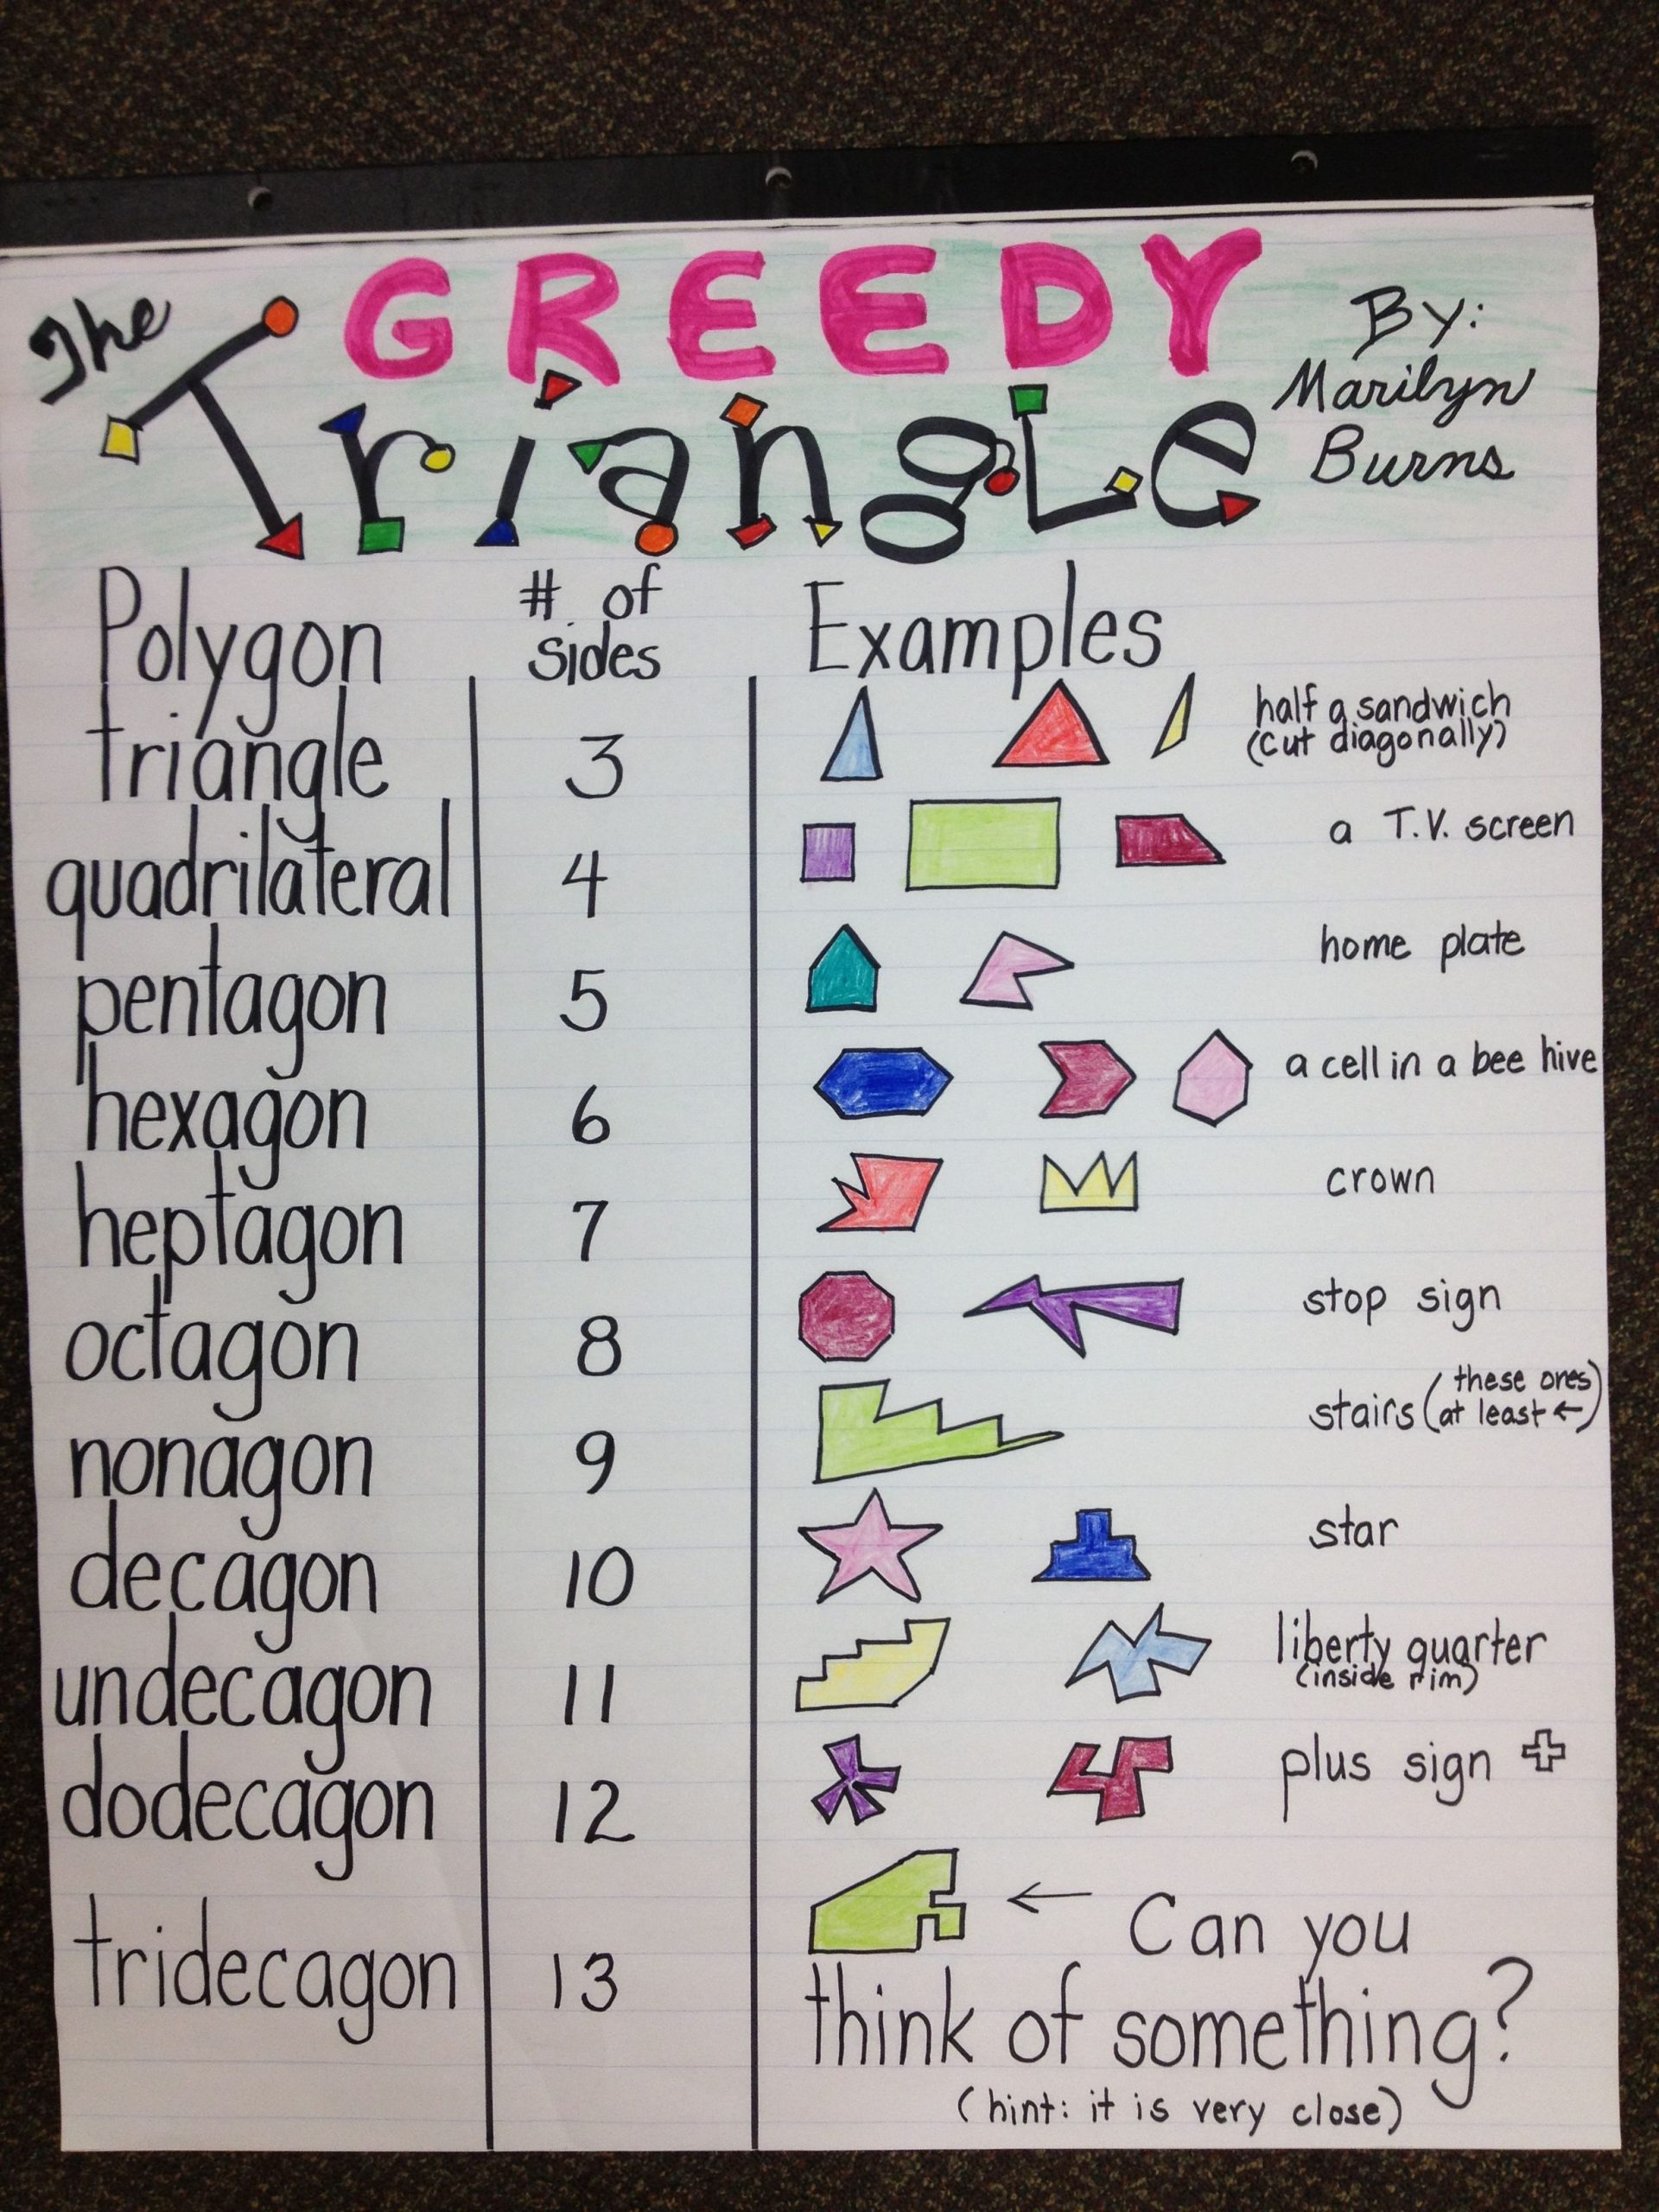 The GREEDY
TriangLe
By:
Marilyn
Burns
Polygon # of sides Examples
triangle 3 half a sandwich
(cut diagonally)
quadrilateral 4 a T.V. screen
pentagon 5 home plate
hexagon 6 a cell in a bee hive
heptagon 7 crown
octagon 8 stop sign
nonagon 9 stairs (these ones at least ←)
decagon 10 star
undecagon 11 liberty quarter
(inside rim)
dodecagon 12 plus sign
tridecagon 13 ← Can you
think of something?
(hint: it is very close)